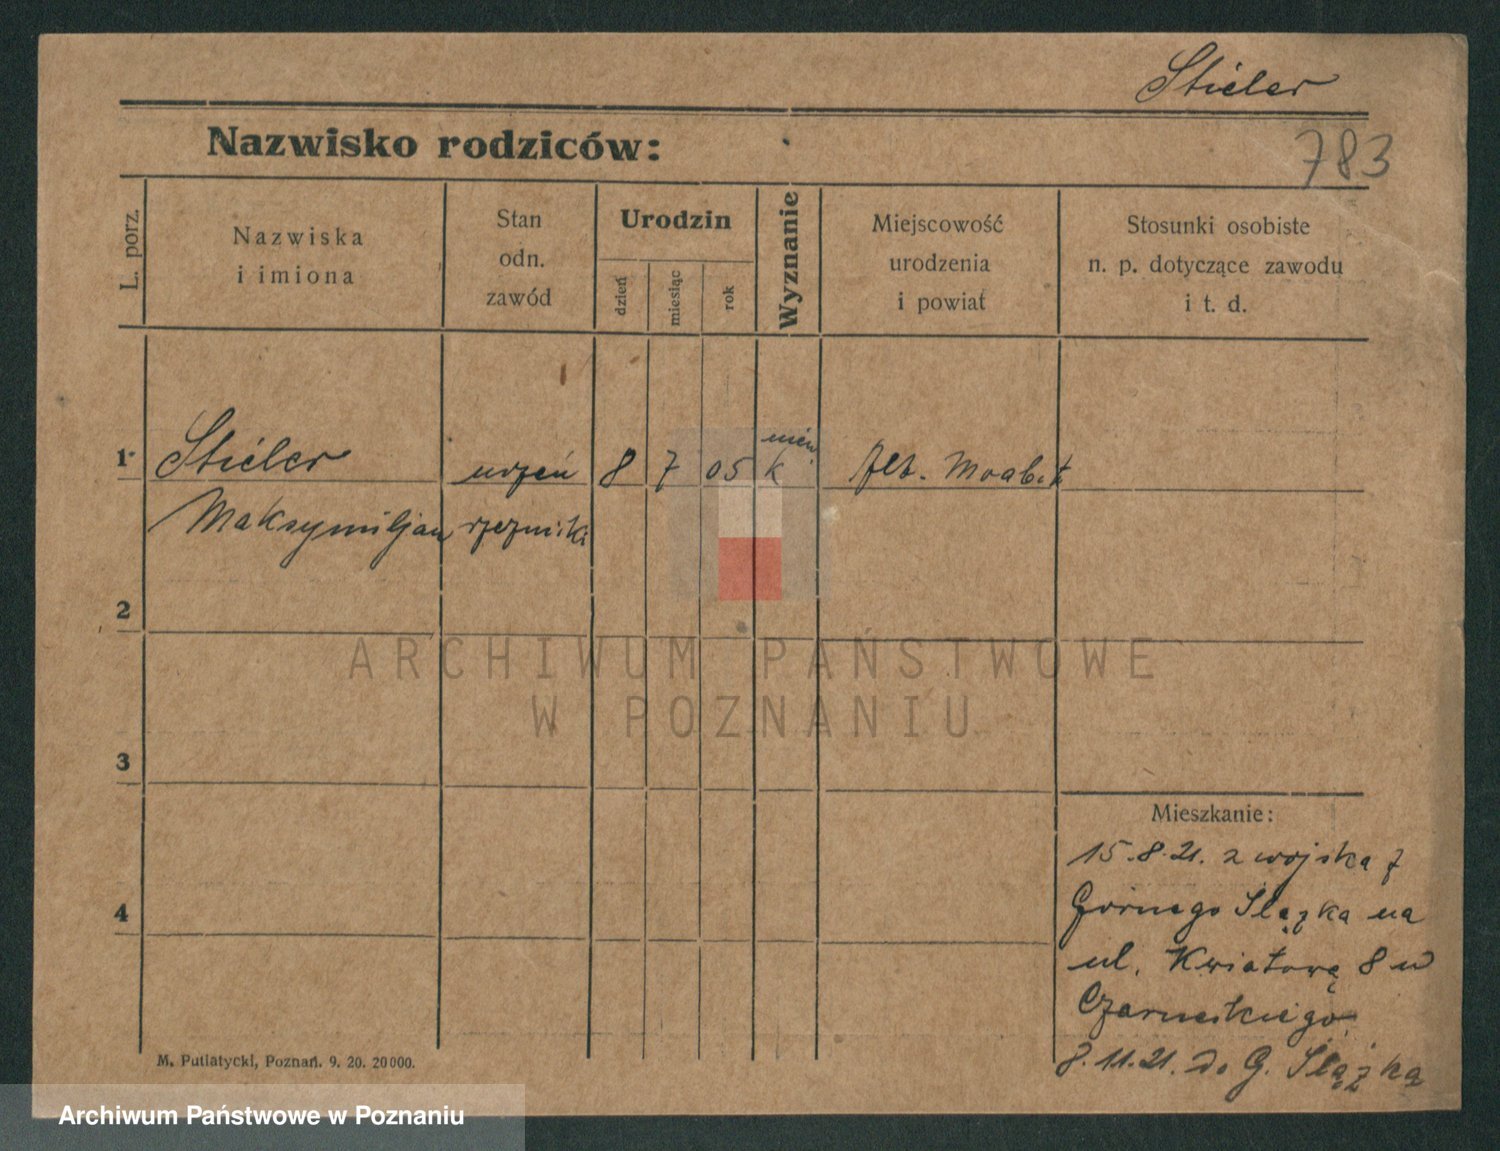 Stieler
783
Nazwisko rodziców:
L. porz.
Nazwiska
i imiona
Stan
odn.
zawód
Urodzin
dzień
miesiąc
rok
Wyznanie
Miejscowość
urodzenia
i powiat
Stosunki osobiste
n. p. dotyczące zawodu
i t. d.
1
Stieler
uczeń
8
7
05
k
Moabit
Maksymiljan
rzeźnicki
2
ARCHIWUM PAŃSTWOWE
W POZNANIU
3
Mieszkanie:
15.8.21. z wojska z
Górnego Slązka na
4
ul. Kwiatową 8 u
Czarneckiego
8.11.21. do G. Slązka
M. Putiatycki, Poznań. 9. 20. 20000.
Archiwum Państwowe w Poznaniu